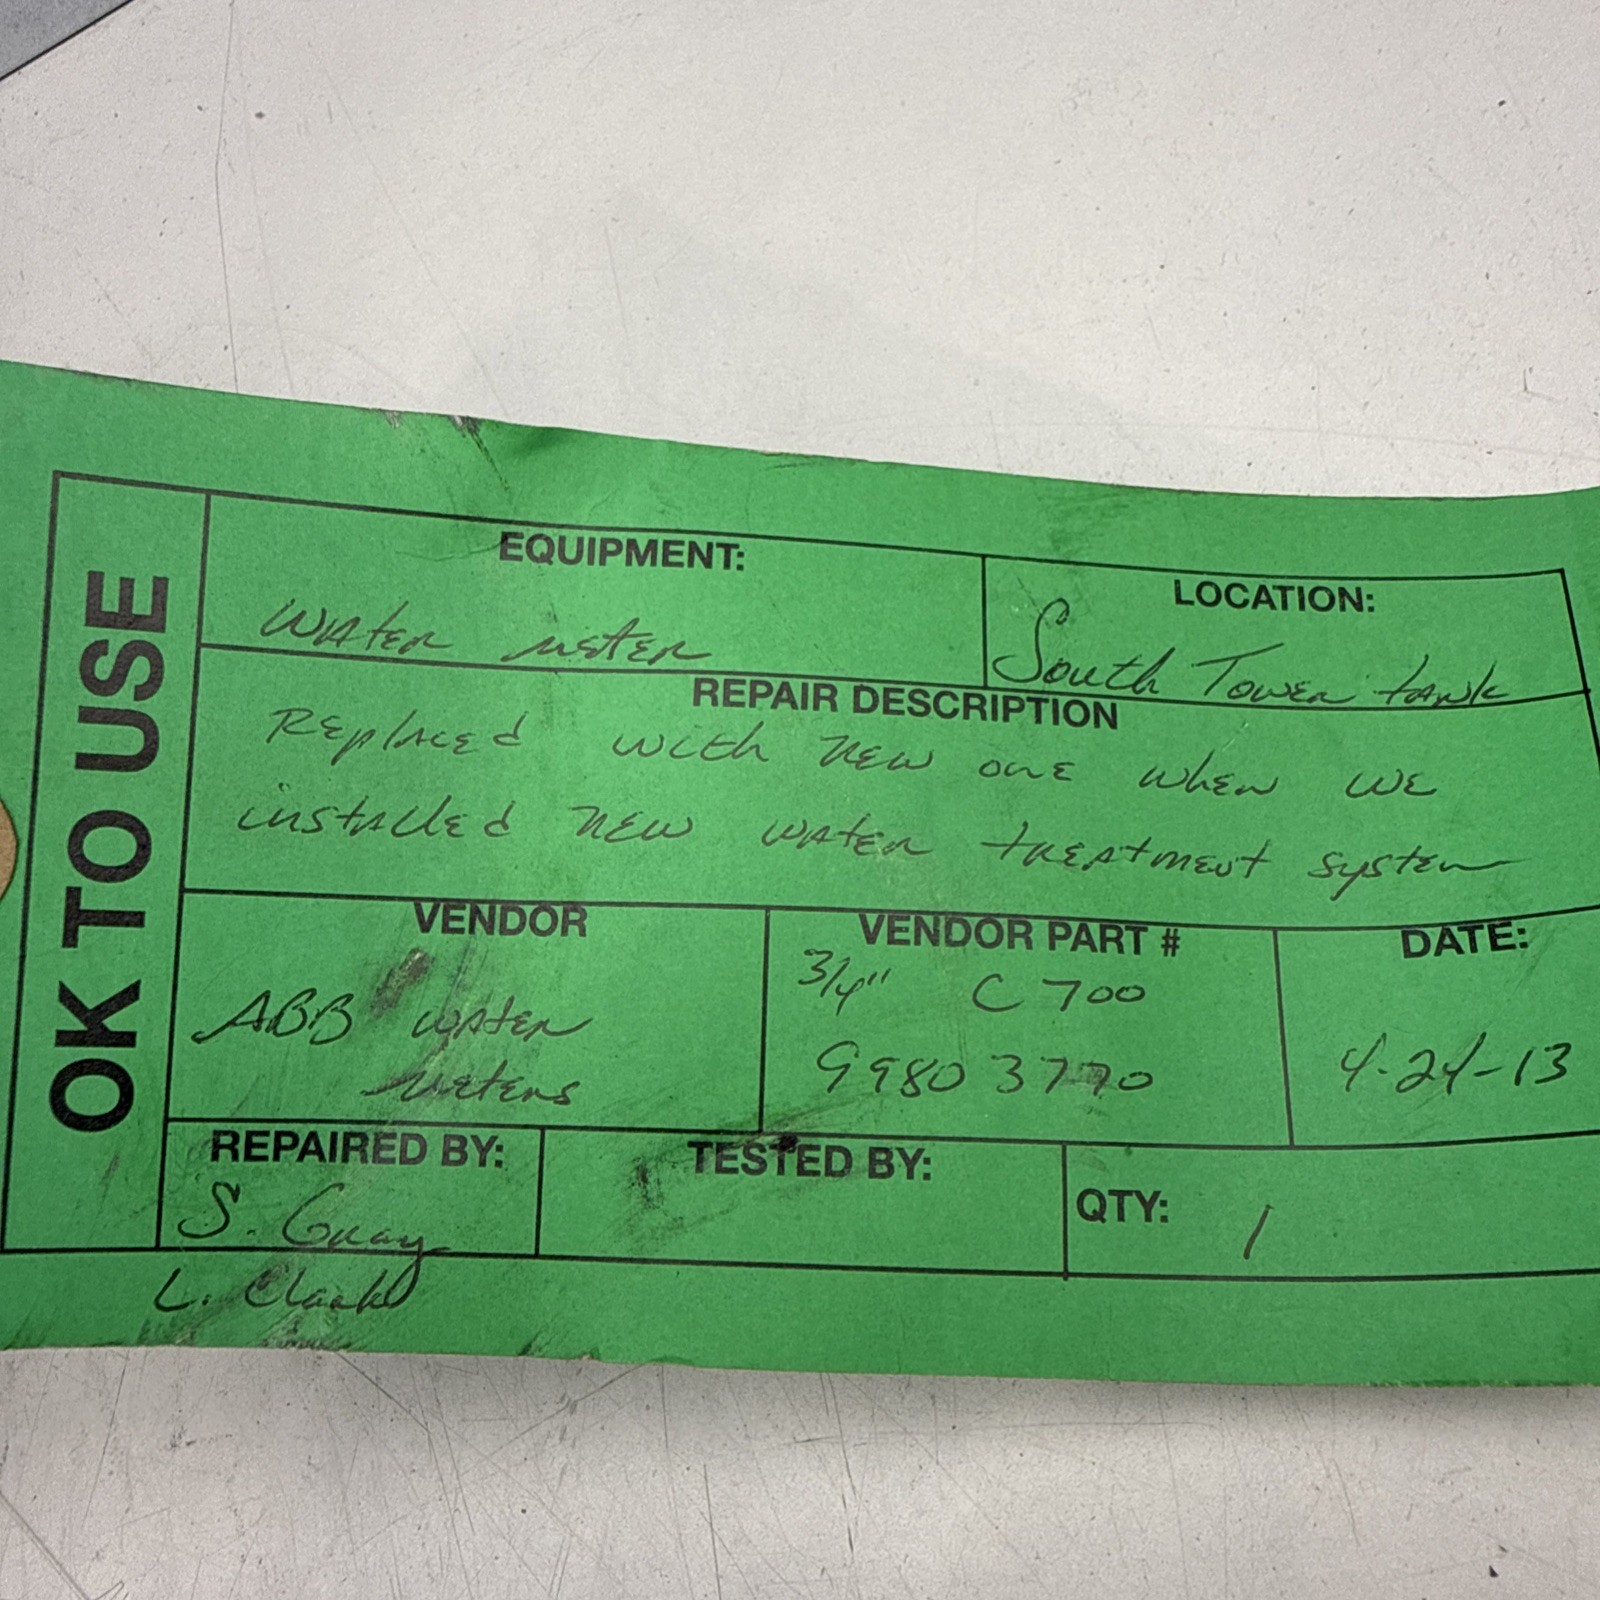 OK TO USE
EQUIPMENT:
Water meter
LOCATION:
South Tower tank
REPAIR DESCRIPTION
Replaced with new one when we
installed new water treatment system
VENDOR
ABB water
meters
VENDOR PART #
3/4" C 700
99803770
DATE:
4-24-13
REPAIRED BY:
S. Gray
L. Clark
TESTED BY:
QTY: 1